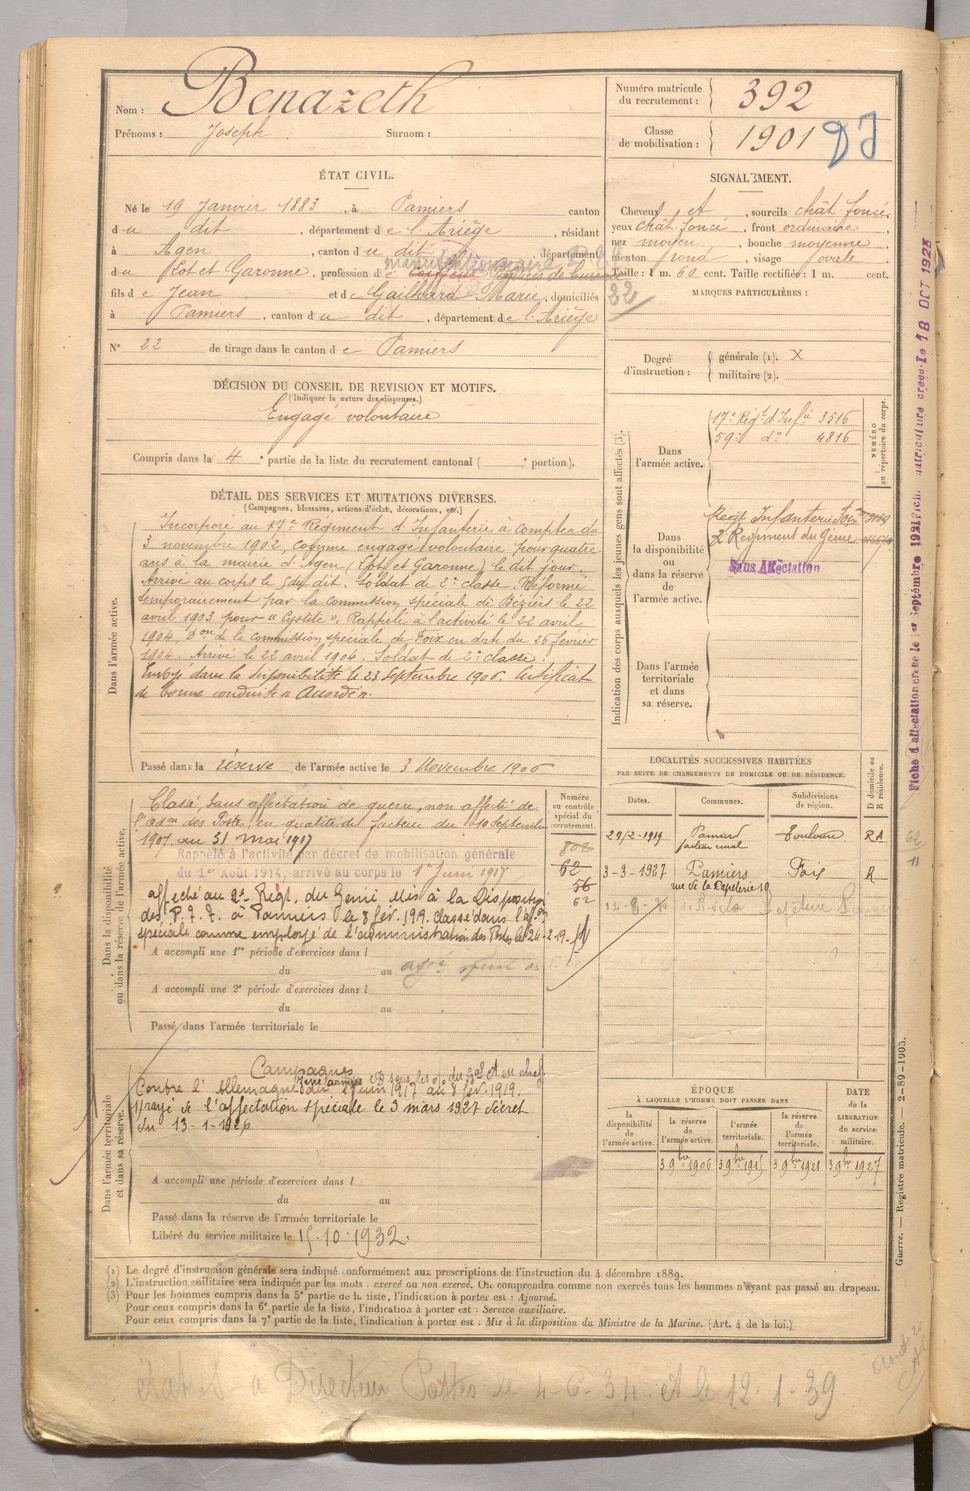 Nom : Benazeth
Prénoms : Joseph Surnom :
Numéro matricule du recrutement : 392
Classe de mobilisation : 1901
ÉTAT CIVIL.
Né le 19 Janvier 1883, à Pamiers canton
du dit, département de l'Ariège, résidant
à Agen, canton du dit, département
du Lot et Garonne, profession de Coiffeur
fils de Jean et de Gailhard Marie, domiciliés
à Pamiers, canton du dit, département de l'Ariège
N° 22 de tirage dans le canton de Pamiers
SIGNALEMENT.
Cheveux et, sourcils chât. foncé,
yeux chât. foncé, front ordinaire
nez moyen, bouche moyenne
menton rond, visage ovale
Taille : 1 m. 60 cent. Taille rectifiée : 1 m. cent.
32
MARQUES PARTICULIÈRES :
Degré d'instruction : générale (1). X
militaire (2).
DÉCISION DU CONSEIL DE REVISION ET MOTIFS.
(Indiquer la nature des dispenses.)
Engagé volontaire
Compris dans la 4e partie de la liste du recrutement cantonal ( e portion).
DÉTAIL DES SERVICES ET MUTATIONS DIVERSES.
(Campagnes, blessures, actions d'éclat, décorations, etc.)
Dans l'armée active.
Incorporé au 17e Régiment d'Infanterie à compter du
3 novembre 1902, comme engagé volontaire pour quatre
ans à la mairie d'Agen (Lot et Garonne) le dit jour.
Arrivé au corps le 5 du dit. Soldat de 2e classe. Réformé
temporairement par la commission spéciale de Béziers le 22
avril 1903 pour "Cystite". Rappelé à l'activité le 22 avril
1904, don de la commission spéciale de Foix en date du 16 février
1904. Arrivé le 22 avril 1904. Soldat de 2e classe.
Envoyé dans la disponibilité le 23 Septembre 1906. Certificat
de bonne conduite "Accordé".
Passé dans la réserve de l'armée active le 3 Novembre 1906
Indication des corps auxquels les jeunes gens sont affectés (3).
NUMÉRO au répertoire du corps.
Dans l'armée active.
17e Régt d'Infie 3516
59e do 4816
Dans la disponibilité ou dans la réserve de l'armée active.
Regt Infanterie Foix
2 Régiment du Génie
Sans Affectation
Dans l'armée territoriale et dans sa réserve.
LOCALITÉS SUCCESSIVES HABITÉES
PAR SUITE DE CHANGEMENTS DE DOMICILE OU DE RÉSIDENCE.
Dates. Communes. Subdivisions de région. D domicile ou R résidence.
27/2-1919 Pamiers facteur rural Toulouse RA
3-3-1927 Pamiers rue de la Papeterie 10 Foix R
Dans la disponibilité ou dans la réserve de l'armée active.
Numéro au contrôle spécial du recrutement.
808
62
56
62
Classé sans affectation de guerre, non affecté de
l'adon des Postes, en qualité de facteur du 10 Septembre
1907 au 31 mai 1917
Rappelé à l'activité par décret de mobilisation générale
du 1er Août 1914, arrivé au corps le 1er Juin 1917
affecté au 2e Régt. du Génie. Mis à la Disposition
des P.T.T. à Pamiers le 8 fév. 1919. Classé dans l'affon
spéciale comme employé de l'administration des Postes le 24-2-19.
A accompli une 1re période d'exercices dans l
du au
A accompli une 2e période d'exercices dans l
du au
Passé dans l'armée territoriale le
Dans l'armée territoriale et dans sa réserve.
Campagnes
Contre l'Allemagne du 1er juin 1917 au 8 fév. 1919.
Rayé de l'affectation spéciale le 3 mars 1927 décret
du 13-1-1926
A accompli une période d'exercices dans l
du au
Passé dans la réserve de l'armée territoriale le
Libéré du service militaire le 15.10.1932.
ÉPOQUE
À LAQUELLE L'HOMME DOIT PASSER DANS
DATE de la LIBÉRATION du service militaire.
la disponibilité de l'armée active. la réserve de l'armée active. l'armée territoriale. la réserve de l'armée territoriale.
3 9bre 1906 3 9bre 1915 3 9bre 1921 3 9bre 1927
(1) Le degré d'instruction générale sera indiqué conformément aux prescriptions de l'instruction du 4 décembre 1889.
(2) L'instruction militaire sera indiquée par les mots : exercé ou non exercé. On comprendra comme non exercés tous les hommes n'ayant pas passé au drapeau.
(3) Pour les hommes compris dans la 5e partie de la liste, l'indication à porter est : Ajourné.
Pour ceux compris dans la 6e partie de la liste, l'indication à porter est : Service auxiliaire.
Pour ceux compris dans la 7e partie de la liste, l'indication à porter est : Mis à la disposition du Ministre de la Marine. (Art. 4 de la loi.)
Guerre. — Registre matricule. — 2-89-1903.
Fiche d'affectation créée le 1er Septembre 1921 Fich. matriculaire créée le 18 OCT 1925
état S à Directeur Postes le 4-6-34 et le 12-1-39.